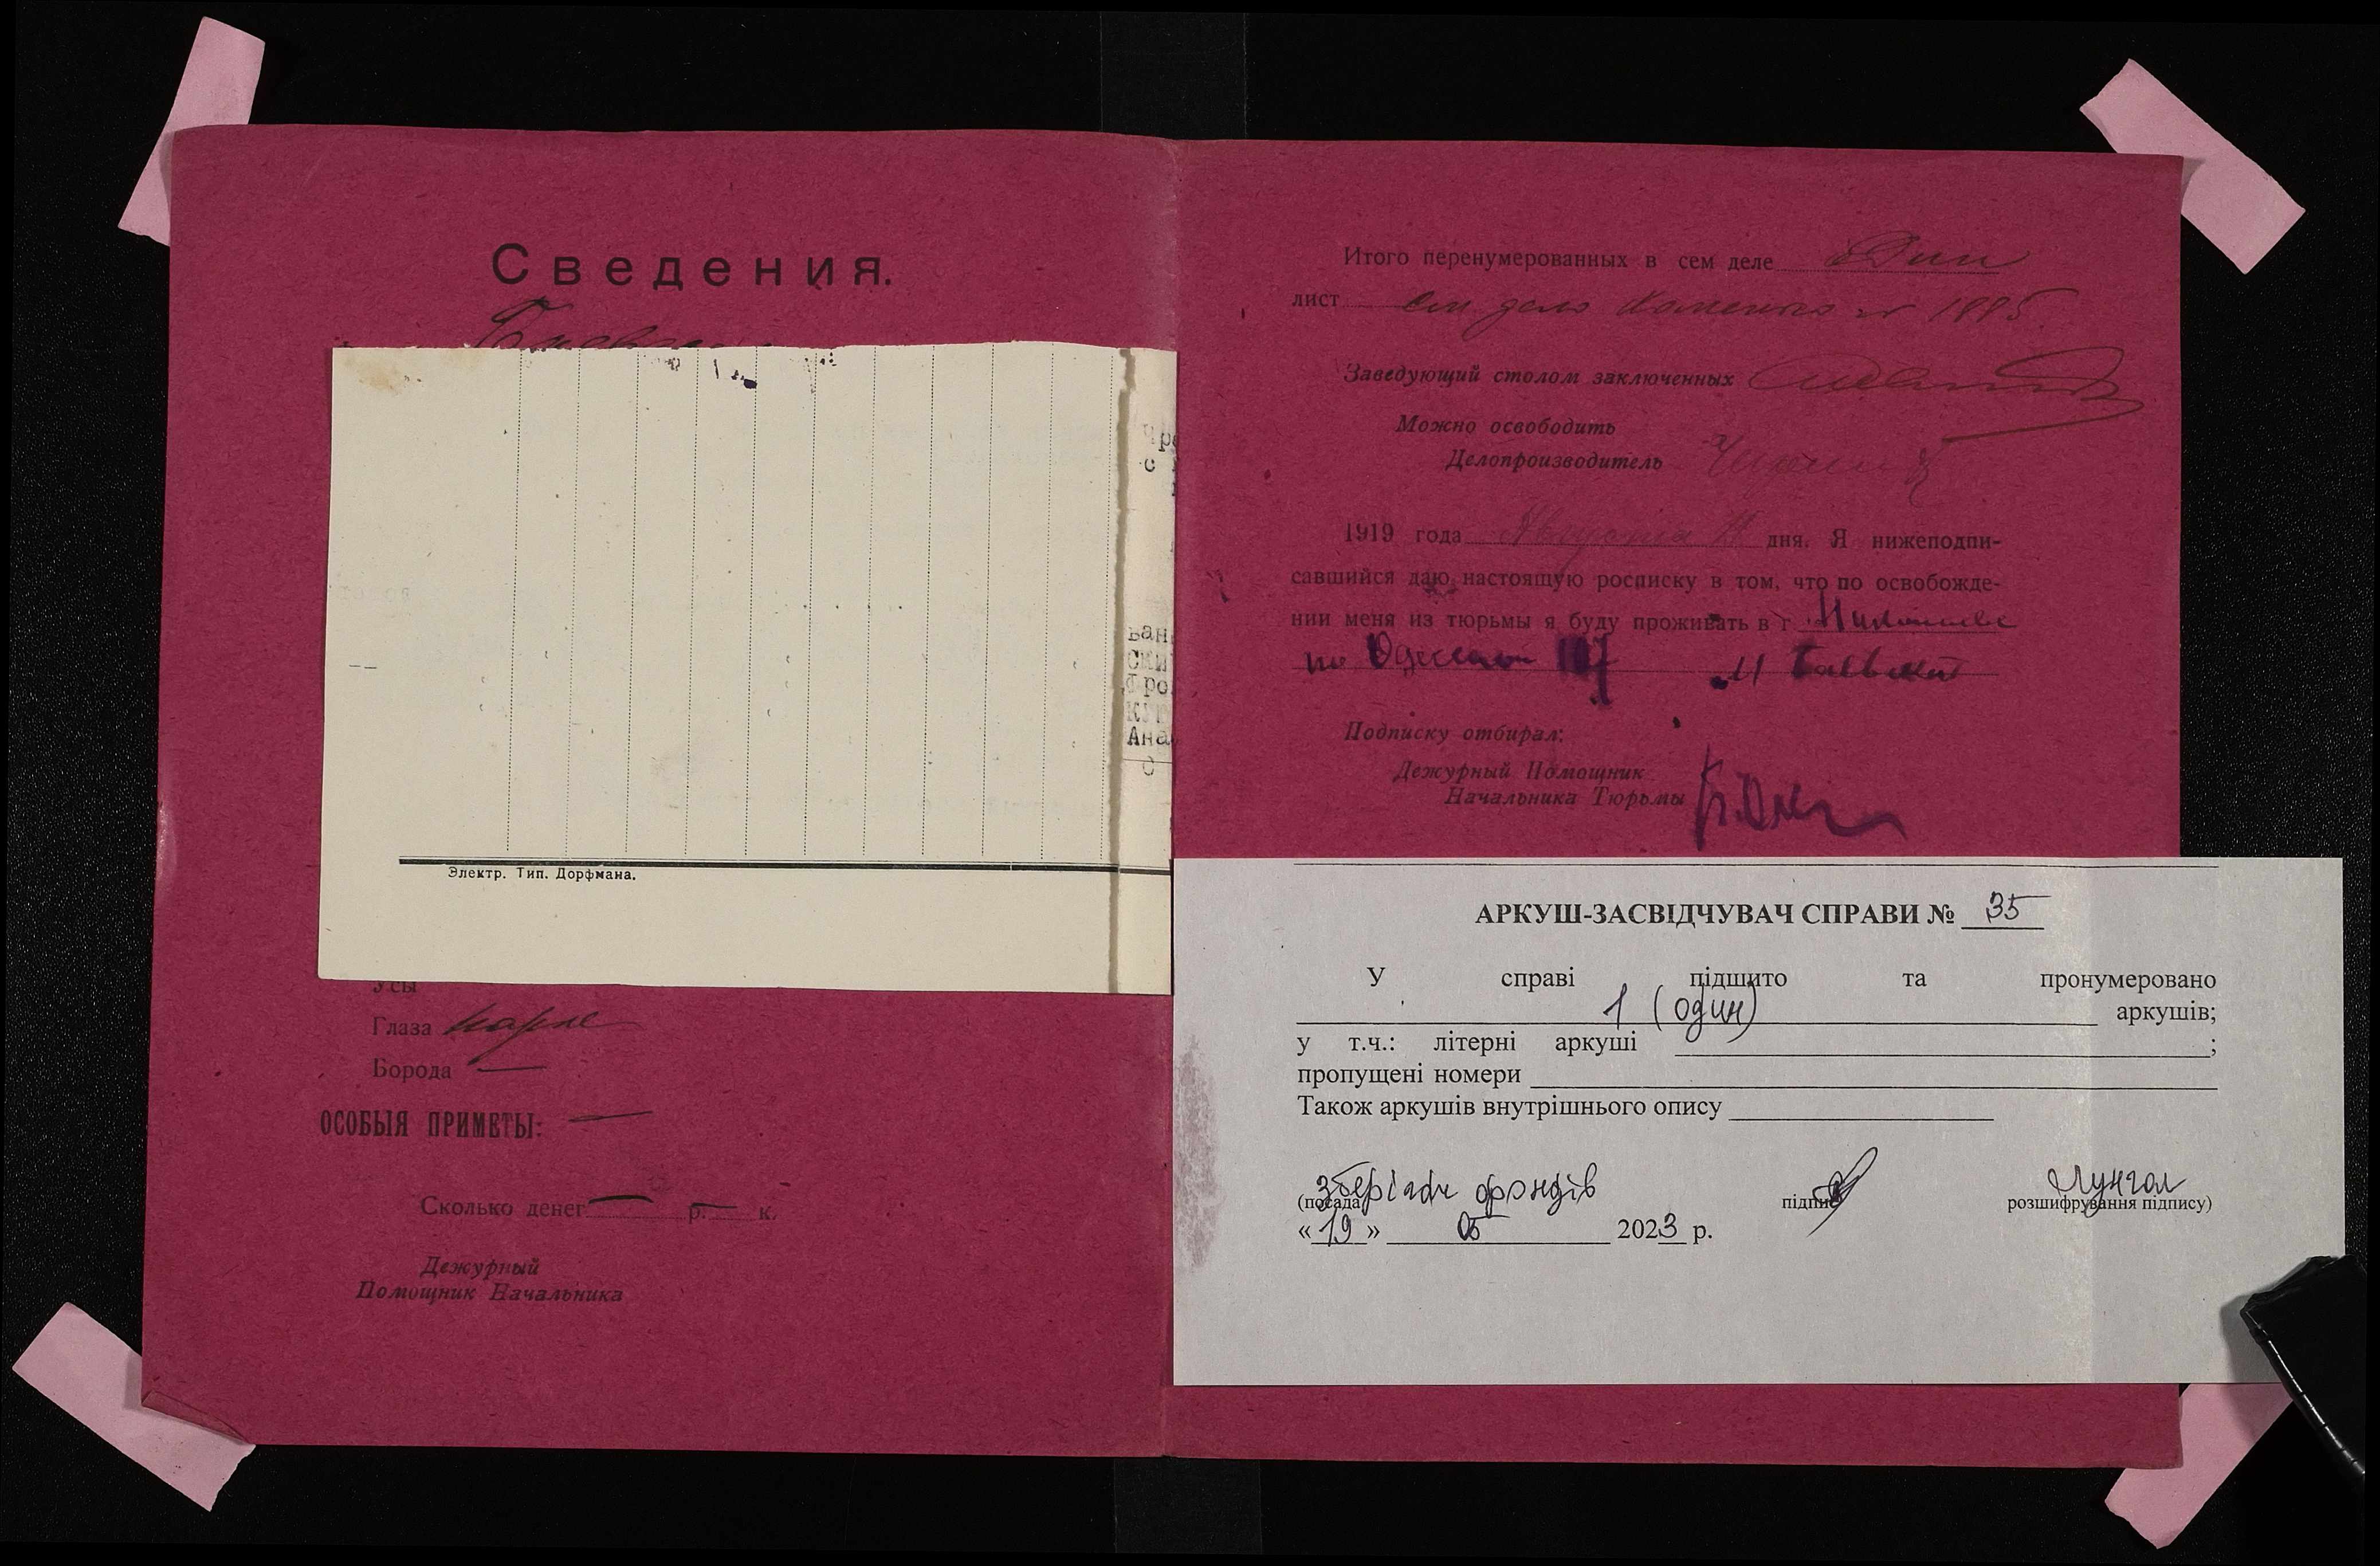 Сведения.
Электр. Тип. Дорфмана.
Усы
Глаза карие
Борода —
ОСОБЫЯ ПРИМЕТЫ: —
Сколько денег — р. — к.
Дежурный
Помощник Начальника
ван
ски
фро
Ана
Итого перенумерованных в сем деле один
лист см дело № 1885
Заведующий столом заключенных
Можно освободить
Делопроизводитель
1919 года Августа дня. Я нижеподпи-
савшийся даю настоящую росписку в том, что по освобожде-
нии меня из тюрьмы я буду проживать в г. Николаеве
по Одесской 107
Подписку отбирал:
Дежурный Помощник
Начальника Тюрьмы
АРКУШ-ЗАСВІДЧУВАЧ СПРАВИ № 35
У справі підшито та пронумеровано
1 (один) аркушів;
у т.ч.: літерні аркуші ;
пропущені номери
Також аркушів внутрішнього опису
зберігач фондів Лунгол
(посада) підпис розшифрування підпису)
« 19 » 05 2023 р.